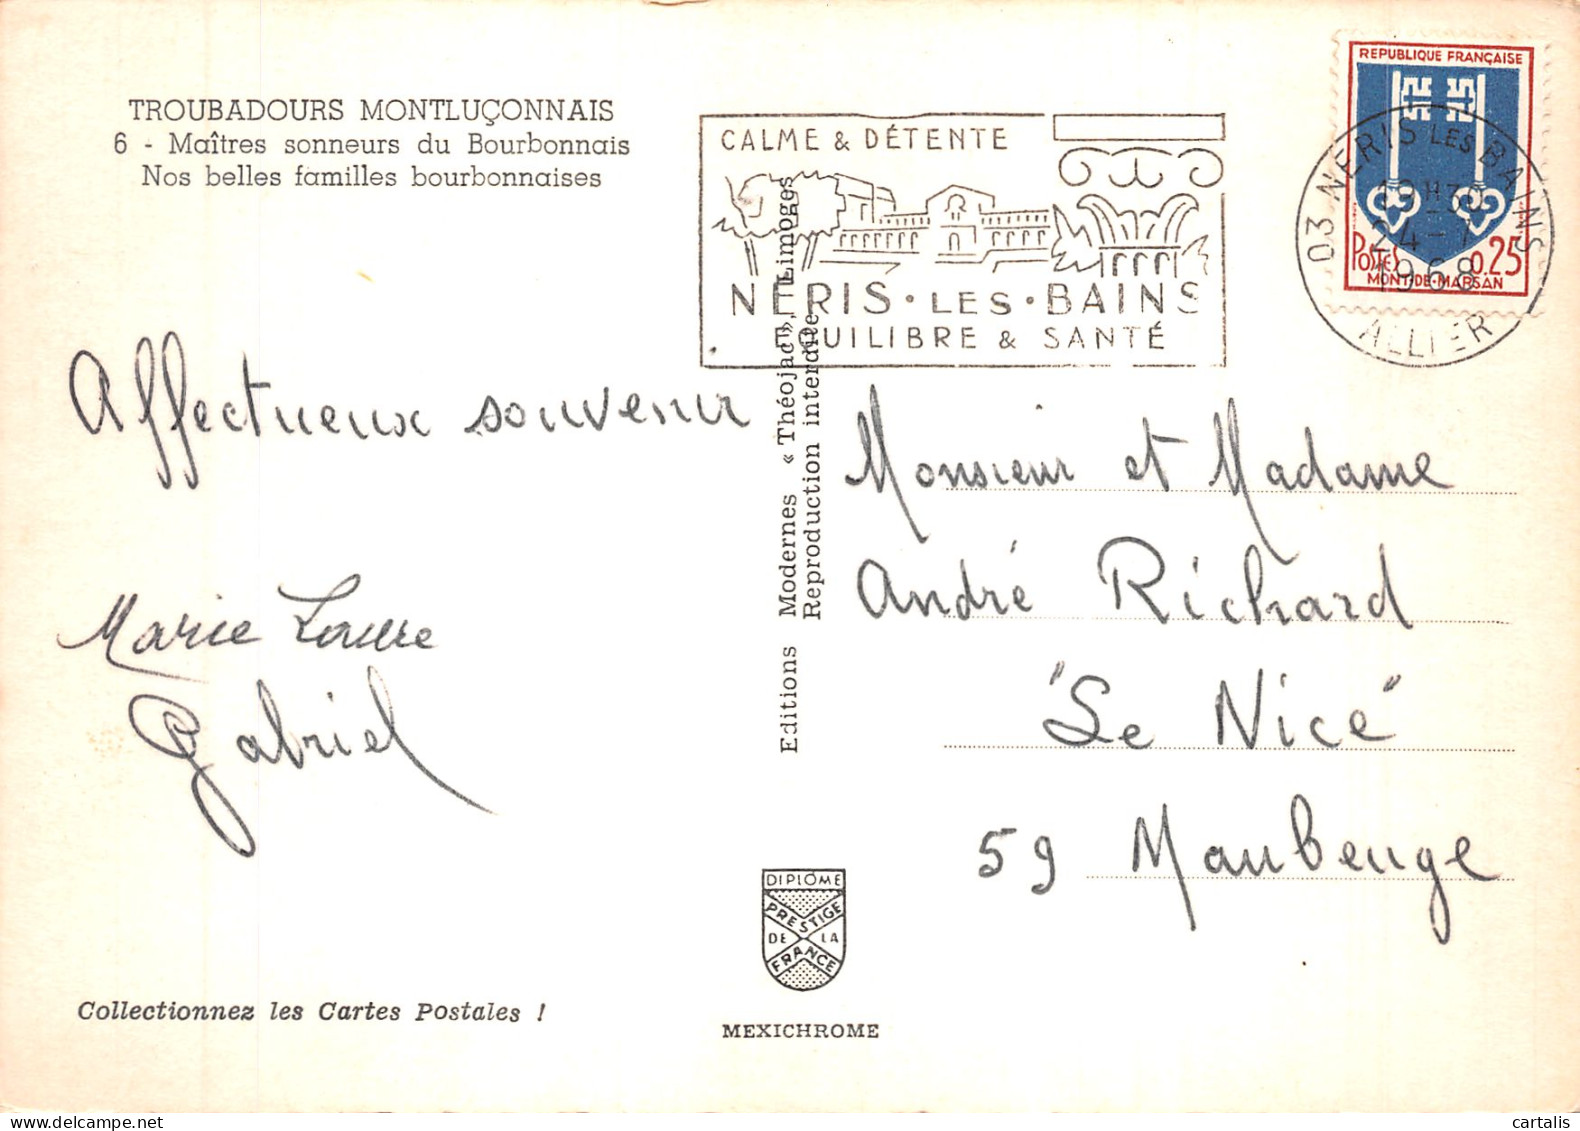 TROUBADOURS MONTLUÇONNAIS
6 - Maîtres sonneurs du Bourbonnais
Nos belles familles bourbonnaises
CALME & DÉTENTE
NÉRIS · LES · BAINS
EQUILIBRE & SANTÉ
REPUBLIQUE FRANÇAISE
POSTES 0.25
MONT-DE-MARSAN
03 NERIS LES BAINS
19H30
24-7
1968
ALLIER
Affectueux souvenir
Marie Laure
Gabriel
Editions Modernes « Théojac », Limoges
Reproduction interdite
Monsieur et Madame
André Richard
"Le Nice"
59 Maubeuge
DIPLÔME
PRESTIGE
DE LA
FRANCE
Collectionnez les Cartes Postales !
MEXICHROME
cartalis